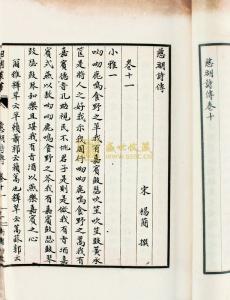 慈湖詩傳卷十
慈湖詩傳
卷十一
宋 楊簡 撰
小雅一
呦呦鹿鳴食野之苹我有嘉賓鼓瑟吹笙吹笙鼓簧承
筐是將人之好我示我周行呦呦鹿鳴食野之蒿我有
嘉賓德音孔昭視民不恌君子是則是傚我有旨酒嘉
賓式燕以敖呦呦鹿鳴食野之芩我有嘉賓鼓瑟鼓琴
鼓瑟鼓琴和樂且湛我有旨酒以燕樂嘉賓之心
爾雅釋草云苹藾蕭郭云藾蒿也釋草云蒿菣郭云